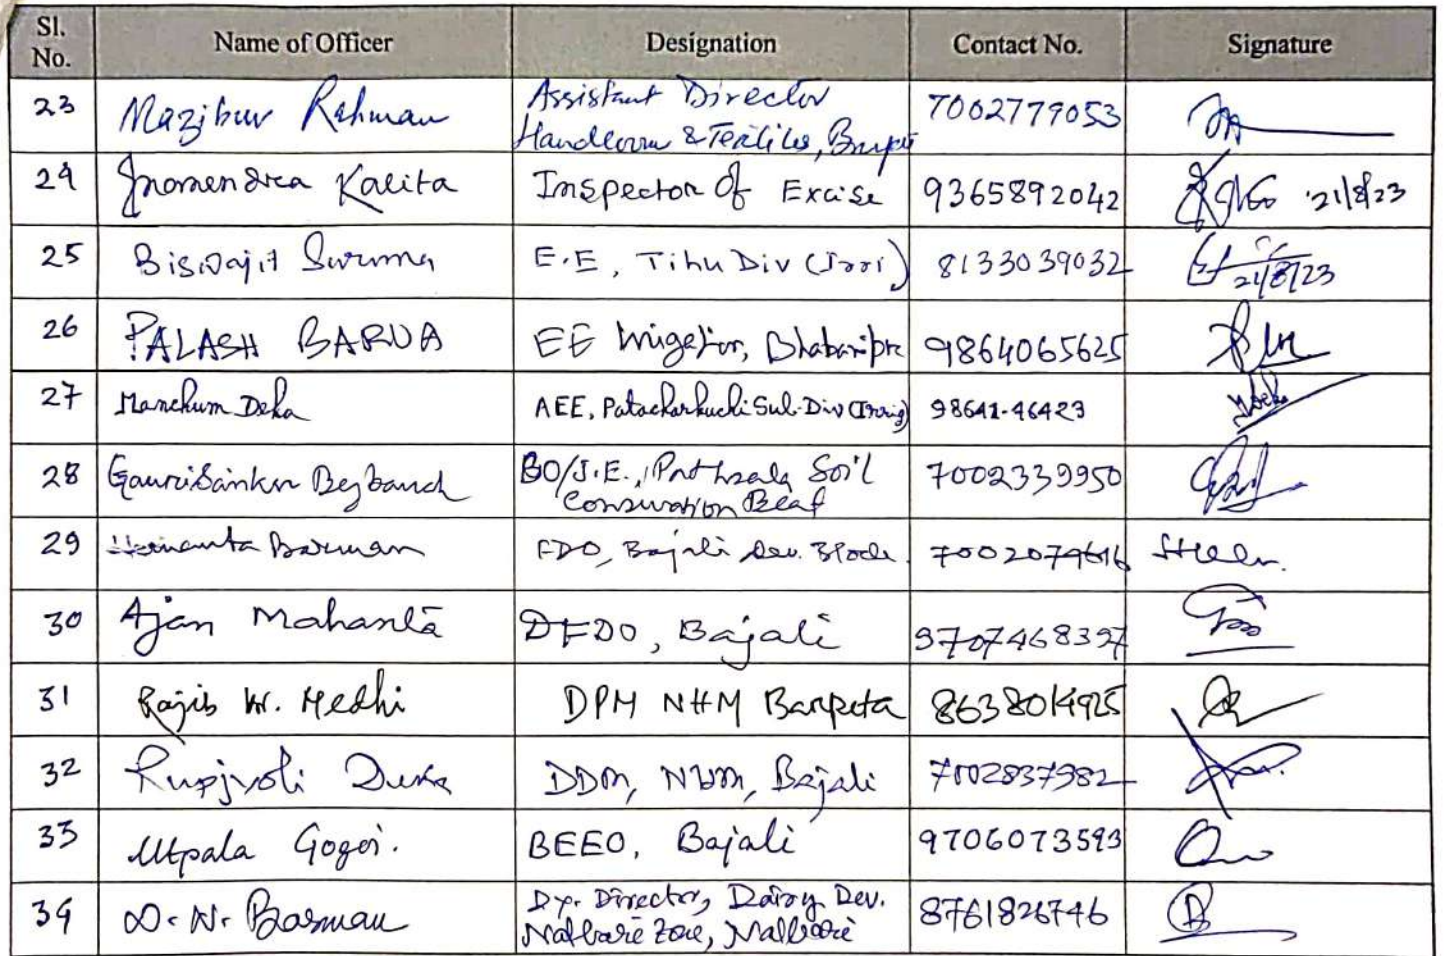 Sl. No. Name of Officer Designation Contact No. Signature
23 Mazibur Rahman Assistant Director 7002779053
Handloom & Textiles,
24 Jnanendra Kalita Inspector Of Excise 9365892042 21/8/23
25 Biswajit Surma E.E, Tihu Div (Irri) 8133039032 21/8/23
26 PALASH BARUA EE Irrigation, Bhabanipur 9864065625
27 Manchum Deka AEE, Patacharkuchi Sub-Div (Irrig) 98641-46423
28 Gaurisankar BO/J.E., Pathsala Soil 7002339950
Conservation Beat
29 Hemanta Barman FDO, Bajali Dev. Block 7002079616
30 Ajan Mahanta DFDO, Bajali 9707468397
31 Rajib Kr. Medhi DPM NHM Barpeta 8638014925
32 Rupjyoti DDM, NHM, Bajali 7002837982
33 Utpala Gogoi. BEEO, Bajali 9706073593
34 D. N. Barman Dy. Director, Dairy Dev. 8761826746
Nalbari Zone, Nalbari